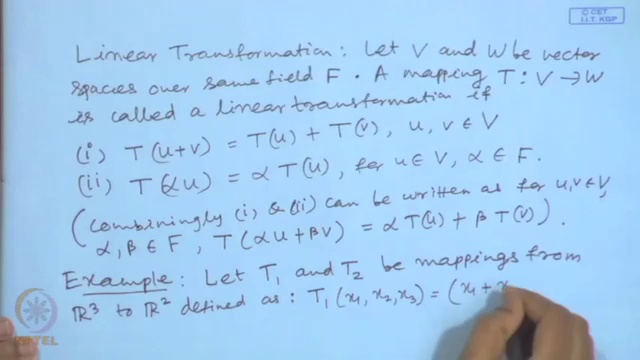 © CET
I.I.T. KGP
Linear Transformation: Let V and W be vector
spaces over same field F. A mapping T: V → W
is called a linear transformation if
(i) T(u+v) = T(u) + T(v), u, v ∈ V
(ii) T(αu) = α T(u), for u ∈ V, α ∈ F.
(Combiningly (i) & (ii) can be written as for u, v ∈ V,
α, β ∈ F, T(αu + βv) = α T(u) + β T(v)).
Example: Let T₁ and T₂ be mappings from
ℝ³ to ℝ² defined as: T₁(x₁, x₂, x₃) = (x₁ + x
NPTEL